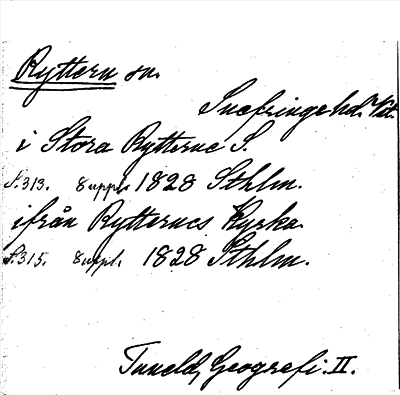 Ryttern sn.
Snefringe hd. Vstm.
i Stora Rytterne S.
S.313. 8 uppl. 1828 Sthlm.
ifrån Rytternes Kyrka
S.315. 8 uppl. 1828 Sthlm.
Tuneld, Geografi. II.